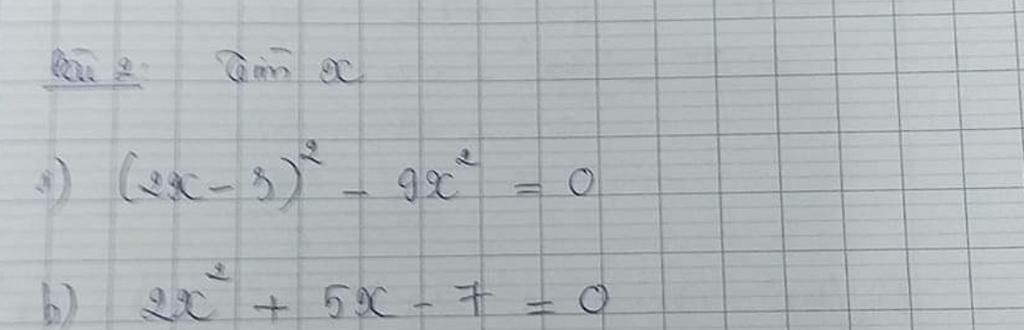 Bài 2: Tìm x
a) (2x - 3)² - 9x² = 0
b) 2x² + 5x - 7 = 0